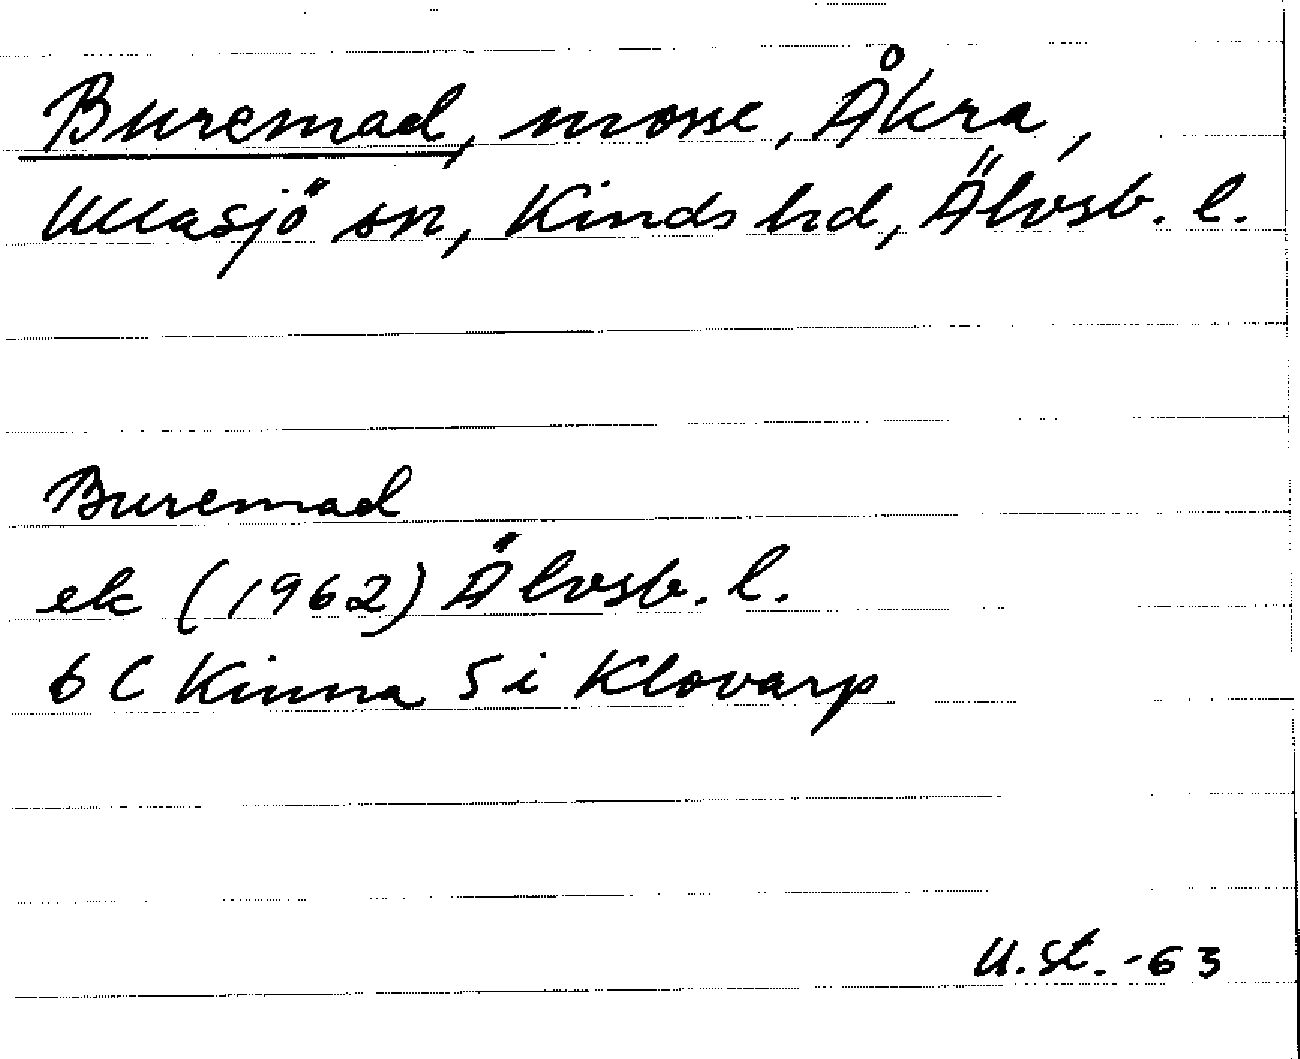 Buremad, mosse, Åkra,
Ullasjö sn, Kinds hd, Älvsb. l.
Buremad
ek (1962) Älvsb. l.
6 C Kinna 5 i Klovarp
U.St.-63